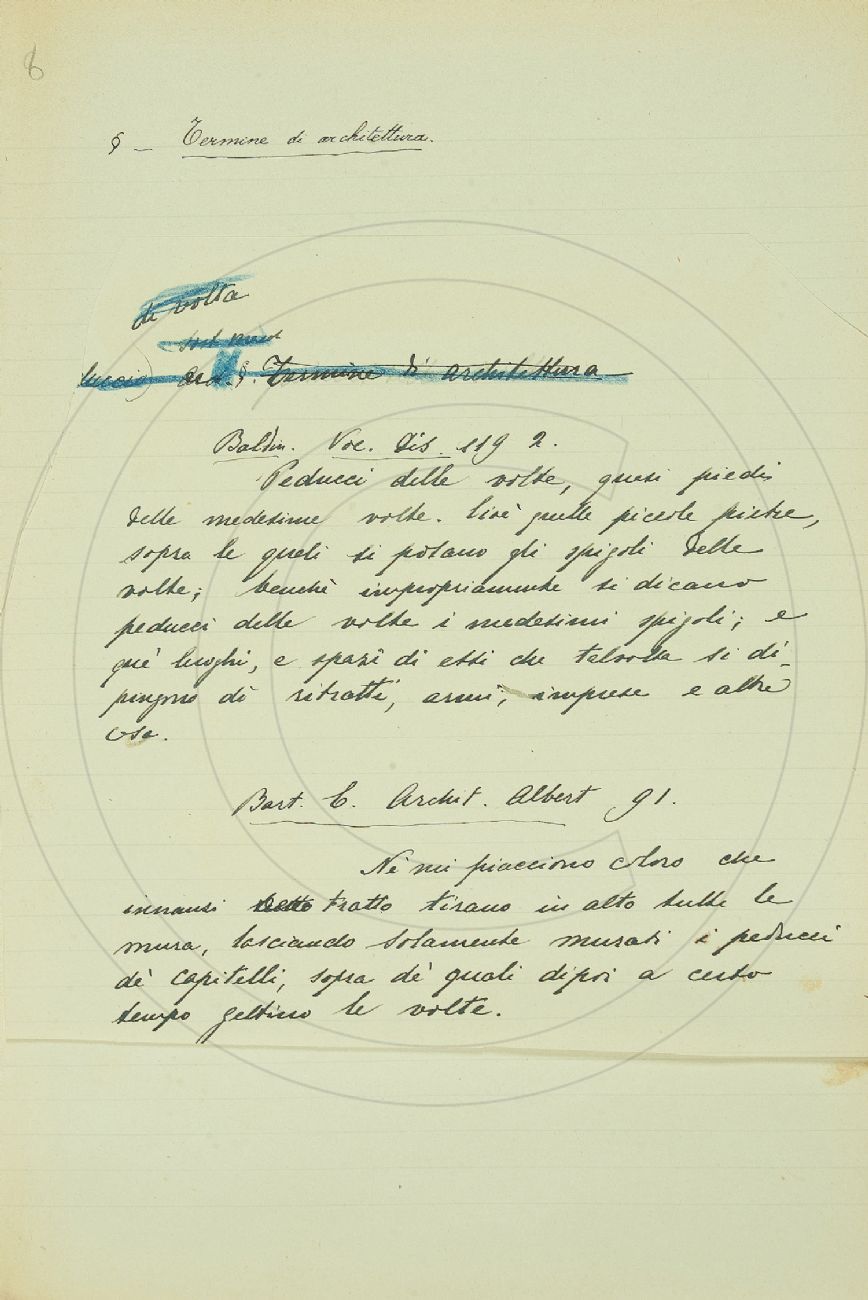 8
§ — Termine di architettura.
di volta
Sost. masc.
§. Termine di architettura
Baldin. Voc. Dis. 119 2.
Peducci delle volte, quasi piedi
delle medesime volte. Cioè quelle piccole pietre,
sopra le quali si posano gli spigoli delle
volte; benchè impropriamente si dicano
peducci delle volte i medesimi spigoli; e
que' luoghi, e spazi di essi che talvolta si di-
pingono di ritratti, armi, imprese e altre
cose.
Bart. C. Archit. Albert 91.
Nè mi piacciono coloro che
innanzi tratto tirano in alto tutte le
mura, lasciando solamente murati i peducci
de' capitelli, sopra de' quali dipoi a certo
tempo gettino le volte.
C